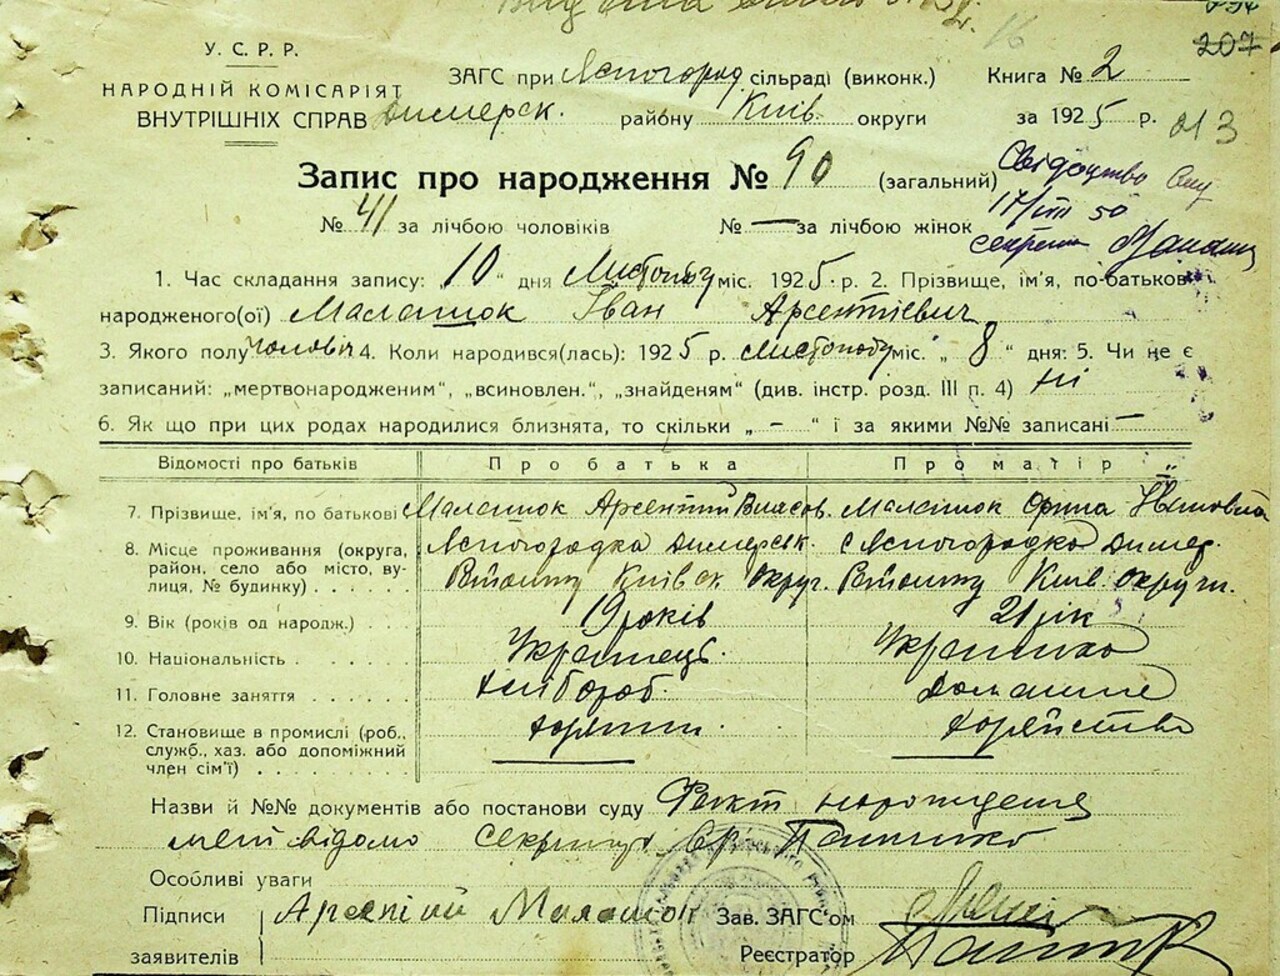 207
У. С. Р. Р.
НАРОДНІЙ КОМІСАРІЯТ
ВНУТРІШНІХ СПРАВ
ЗАГС при Ясногород. сільраді (виконк.) Книга № 2
Димерск. району Київ. округи за 1925 р. 013
Запис про народження № 90 (загальний)
Свідоцтво
№ 41 за лічбою чоловіків № — за лічбою жінок
17/VIII 50
1. Час складання запису: „10" дня Листопаду міс. 1925 р. 2. Прізвище, ім'я, по-батькові
народженого(ої) Малашок Іван Арсентіевич
3. Якого полу чоловіч 4. Коли народився(лась): 1925 р. Листопаду міс. „8" дня: 5. Чи не є
записаний: „мертвонародженим", „всиновлен.", „знайденям" (див. інстр. розд. III п. 4) Ні
6. Як що при цих родах народилися близнята, то скільки „ - " і за якими №№ записані —
Відомості про батьків Про батька Про матір
7. Прізвище, ім'я, по батькові Малашок Арсентий Власов. Малашок Орина
8. Місце проживання (округа, Ясногородка Димерськ. с Ясногородка Димер.
район, село або місто, ву-
лиця, № будинку) Району Київск округ. Району Київ. округи.
9. Вік (років од народж.) 19 років 21 рік
10. Національність Українець. Українка
11. Головне заняття Хлібороб. Домашне
12. Становище в промислі (роб., хозяйство
служб., хаз. або допоміжний
член сім'ї)
Назви й №№ документів або постанови суду Факт нарождения
мені відомо Секретарь
Особливі уваги
Підписи Арсентій Малашок Зав. ЗАГС'ом
заявителів Реєстратор